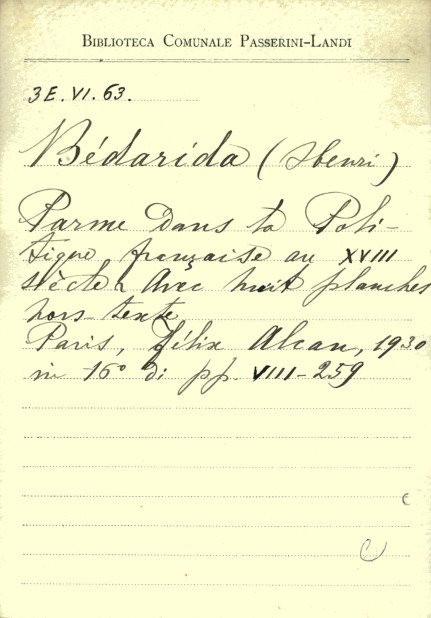 BIBLIOTECA COMUNALE PASSERINI-LANDI
3 E. VI. 63.
Bédarida (Henri)
Parme dans la Poli-
tique française au XVIII
siècle. Avec huit planches
hors-texte
Paris, Félix Alcan, 1930
in 16° di pp. VIII-259
C
C